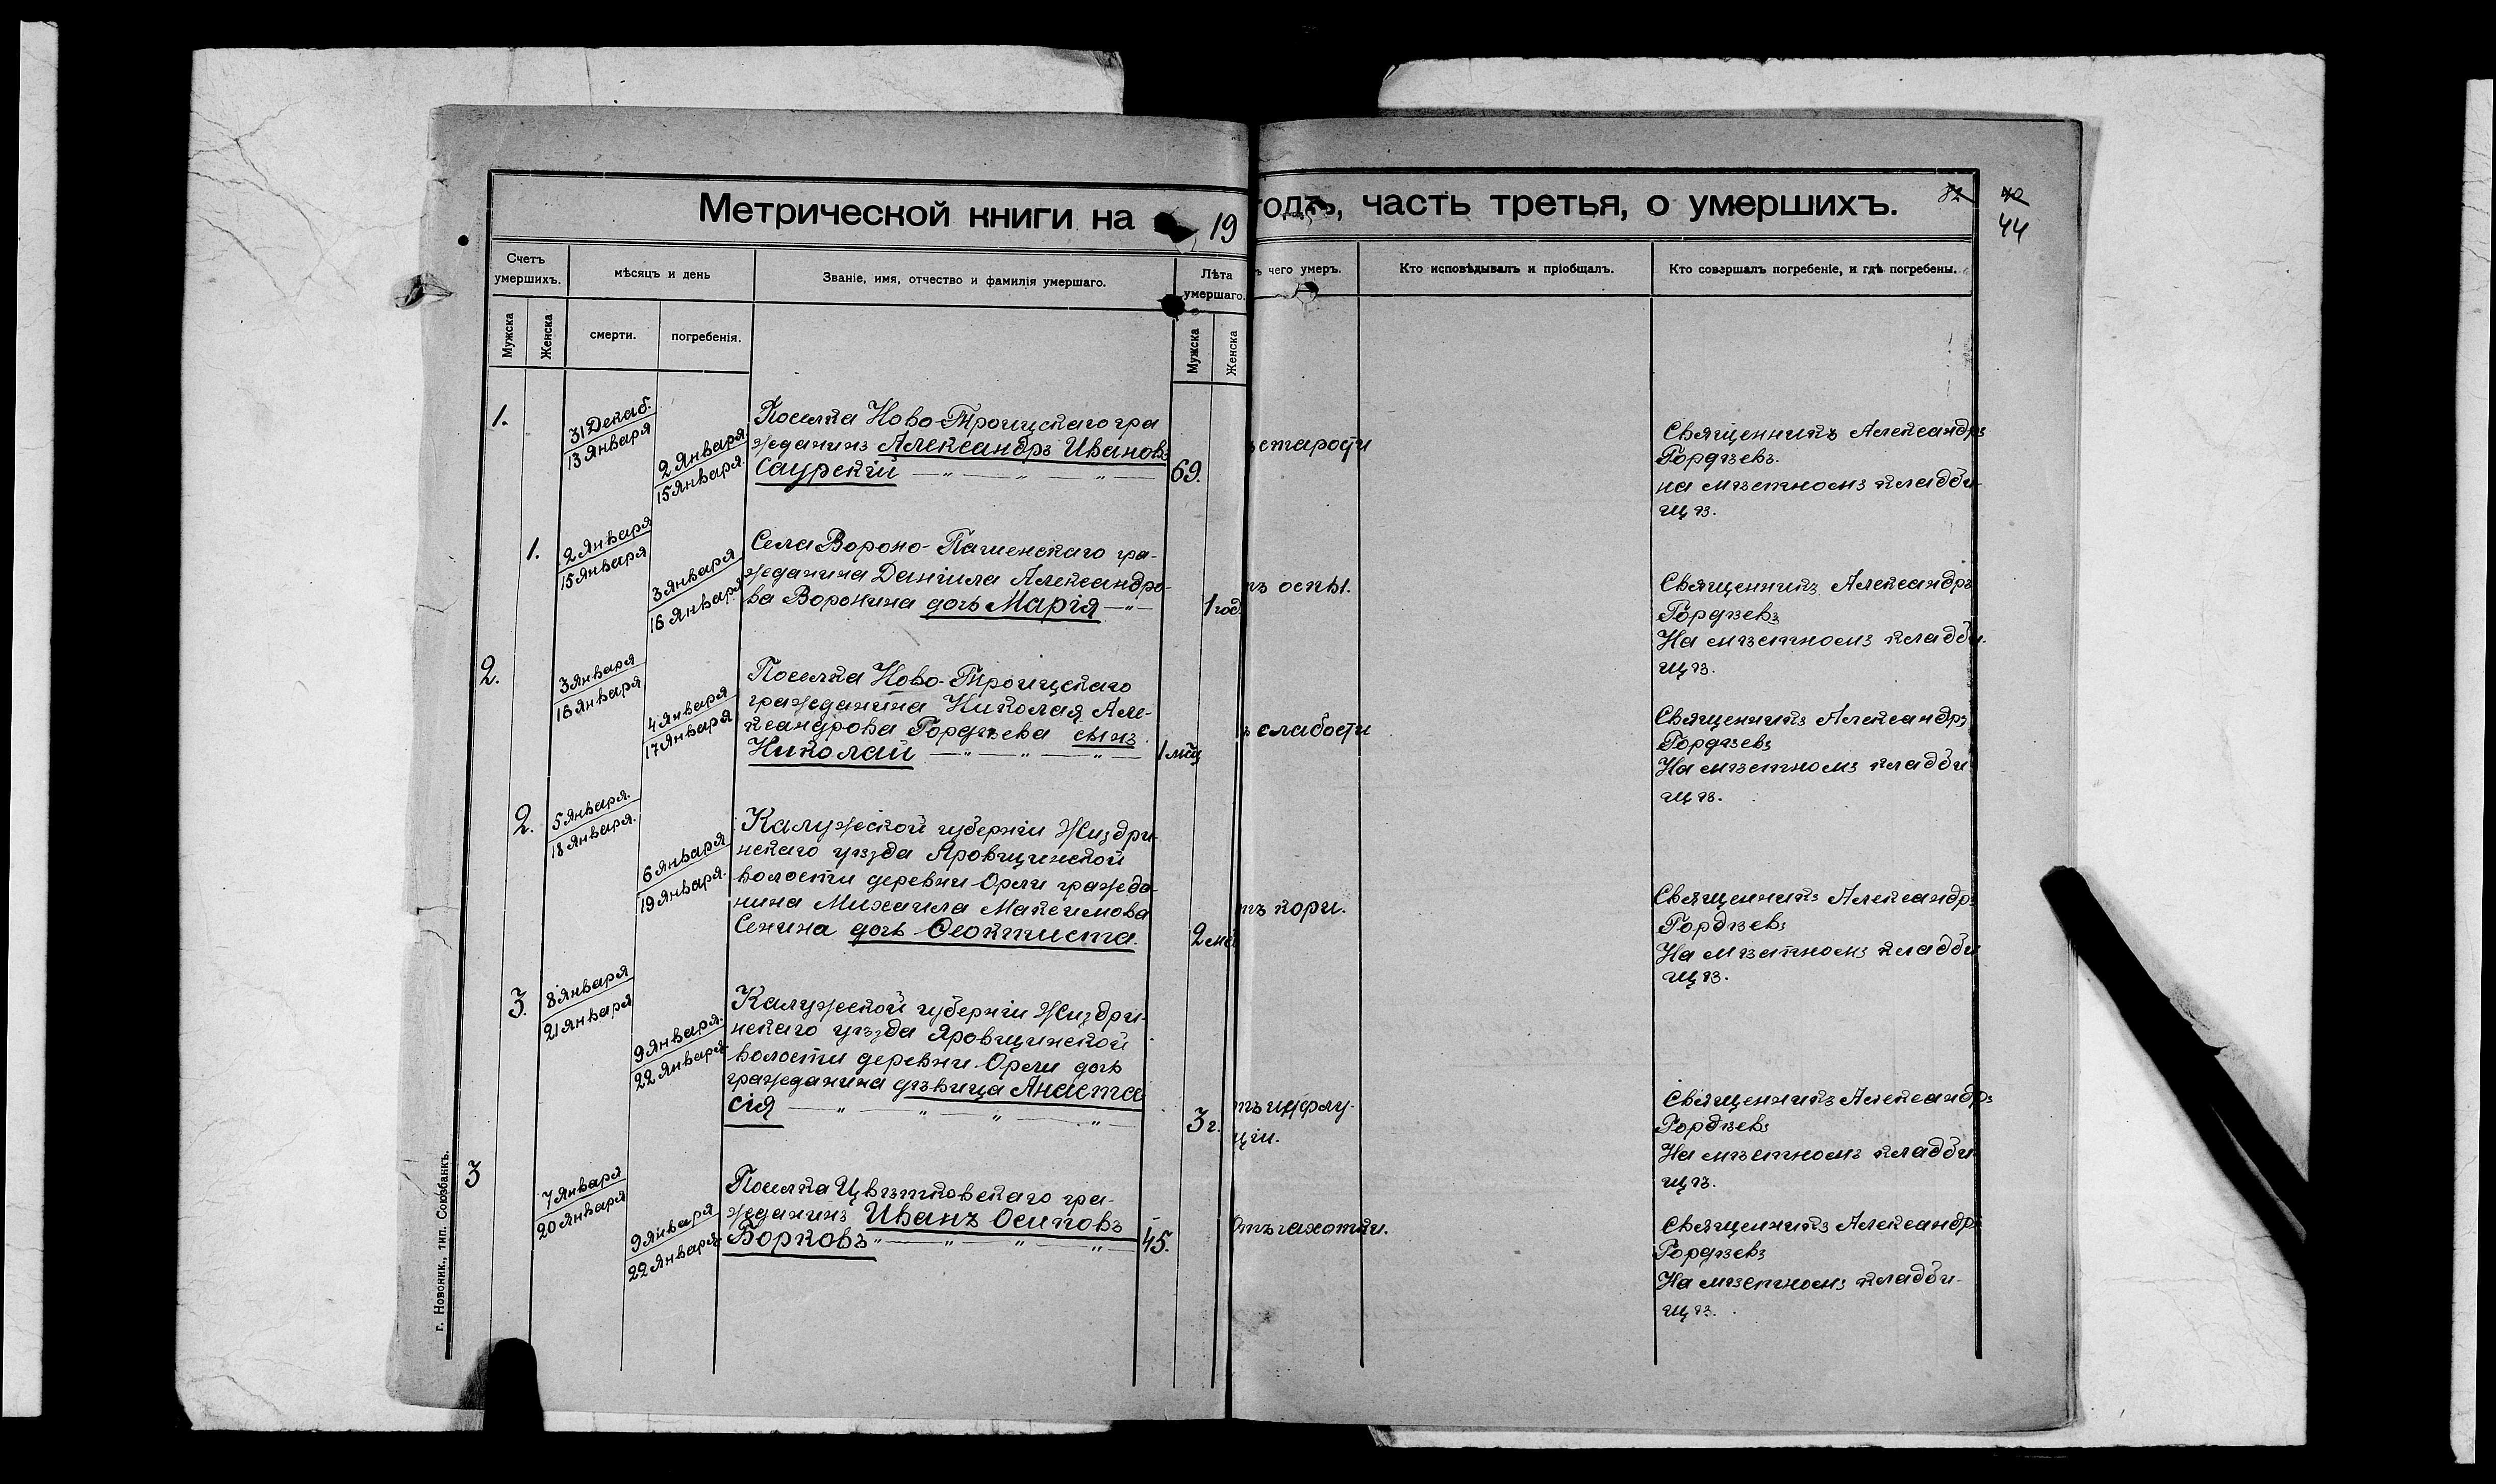 Метрической книги на 19 годъ, часть третья, о умершихъ.
82
42
44
Счетъ умершихъ.
мѣсяцъ и день
Званіе, имя, отчество и фамилія умершаго.
Лѣта умершаго.
ъ чего умеръ.
Кто исповѣдывалъ и пріобщалъ.
Кто совершалъ погребеніе, и гдѣ погребены.
Мужска
Женска
смерти.
погребенія.
Мужска
Женска
1.
31 Декаб.
13 Января
2 Января
15 Января.
Поселка Ново-Троицкаго гра
жданинъ Александръ Ивановъ
Саурскій
69.
ъ старости
Священникъ Александръ
Гордѣевъ.
на мѣстномъ кладби-
щѣ.
1.
2 Января
15 Января
3 Января
16 Января
Села Вороно-Пашенскаго гра-
жданина Даніила Александро-
ва Воронина дочь Марія
1 год.
тъ оспы.
Священникъ Александръ
Гордѣевъ
На мѣстномъ кладби-
щѣ.
2.
3 Января
16 Января
4 Января
17 Января
Поселка Ново-Троицкаго
гражданина Николая Але-
ксандрова Гордѣева сынъ
Николай
1 мѣц
ъ слабости
Священникъ Александръ
Гордѣевъ
На мѣстномъ кладби-
щѣ.
2.
5 Января.
18 Января.
6 Января
19 Января.
Калужской губерніи Жиздри-
нскаго уѣзда Яровщинской
волости деревни Орли гражда-
нина Михаила Максимова
Сенина дочь Феоктиста.
2 мѣс
тъ кори.
Священникъ Александръ
Гордѣевъ
На мѣстномъ кладби
щѣ.
3.
8 Января
21 Января
9 Января.
22 Января.
Калужской губерніи Жиздри-
нскаго уѣзда Яровщинской
волости деревни Орли дочь
гражданина дѣвица Анаста
сія
3 г.
тъ инфлу-
ціи.
Священникъ Александръ
Гордѣевъ
На мѣстномъ кладби
щѣ.
3
7 Января
20 Января
9 Января
22 Января.
Поселка Цвѣтковскаго гра-
жданинъ Иванъ Осиповъ
Борковъ
45.
Отъ чахотки.
Священникъ Александръ
Гордѣевъ
На мѣстномъ кладби-
щѣ.
г. Новоник., тип. Союзбанкъ.